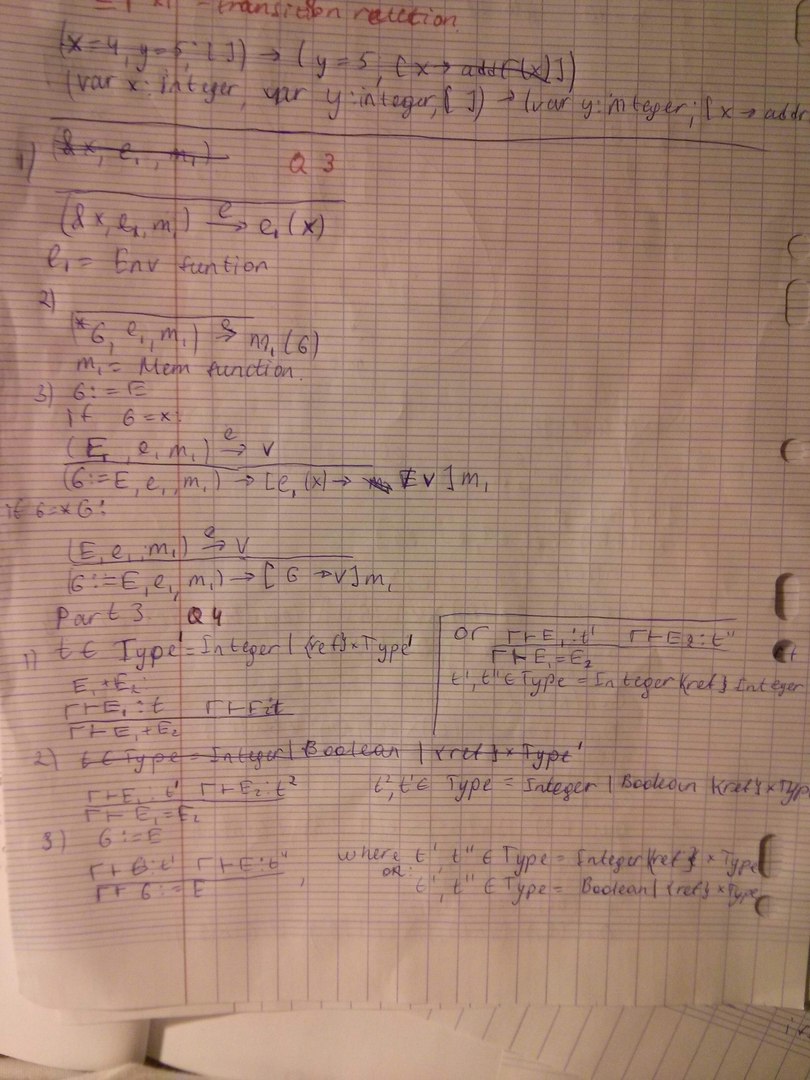 - transition relation.
(x=4, y=5, [ ]) → (y=5, [x → addr(x)])
(var x: integer, var y: integer, [ ]) → (var y: integer; [x → addr
1) (&x, e₁, m₁) Q3
(&x, e₁, m₁) →ᵉ e₁(x)
e₁ = Env funtion
2)
(*6, e₁, m₁) →ᵉ m₁(6)
m₁ = Mem function.
3) 6:=E
if 6=x:
(E, e₁, m₁) →ᵉ v
(6:=E, e₁, m₁) → [e₁(x) → v] m₁
if 6=*6:
(E, e₁, m₁) →ᵉ v
(6:=E, e₁, m₁) → [6 → v] m₁
Part 3 Q4
1) t ∈ Type' = Integer | {ref} × Type'
E₁+E₂
Γ⊢E₁:t Γ⊢E₂:t
Γ⊢E₁+E₂
or Γ⊢E₁:t' Γ⊢E₂:t''
Γ⊢E₁=E₂
t', t'' ∈ Type = Integer|{ref} Integer
2) t ∈ Type = Integer | Boolean | {ref} × Type'
Γ⊢E₁:t' Γ⊢E₂:t² t², t' ∈ Type = Integer | Boolean |{ref}×Typ
Γ⊢E₁=E₂
3) 6:=E
Γ⊢6:t' Γ⊢E:t'' , where t', t'' ∈ Type = Integer|{ref} × Type
Γ⊢6:=E
OR: t', t'' ∈ Type = Boolean| {ref} × Type